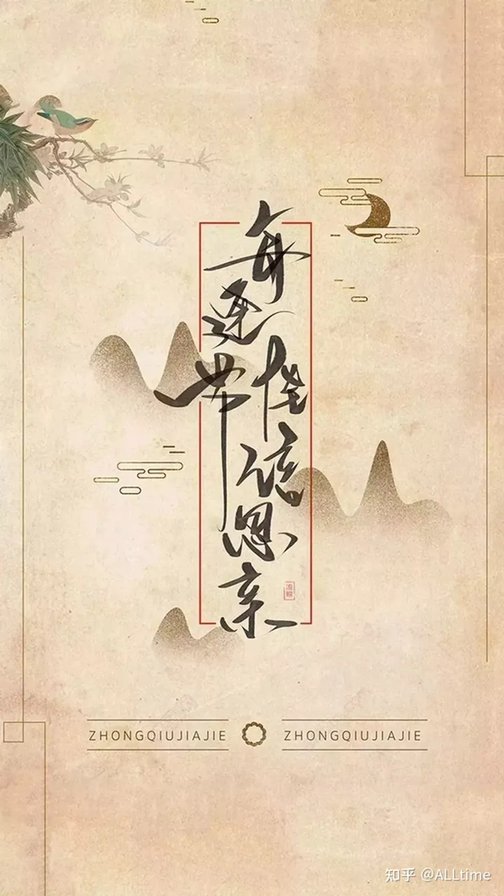 每逢佳节倍思亲
ZHONGQIUJIAJIE ZHONGQIUJIAJIE
知乎 @ALLtime